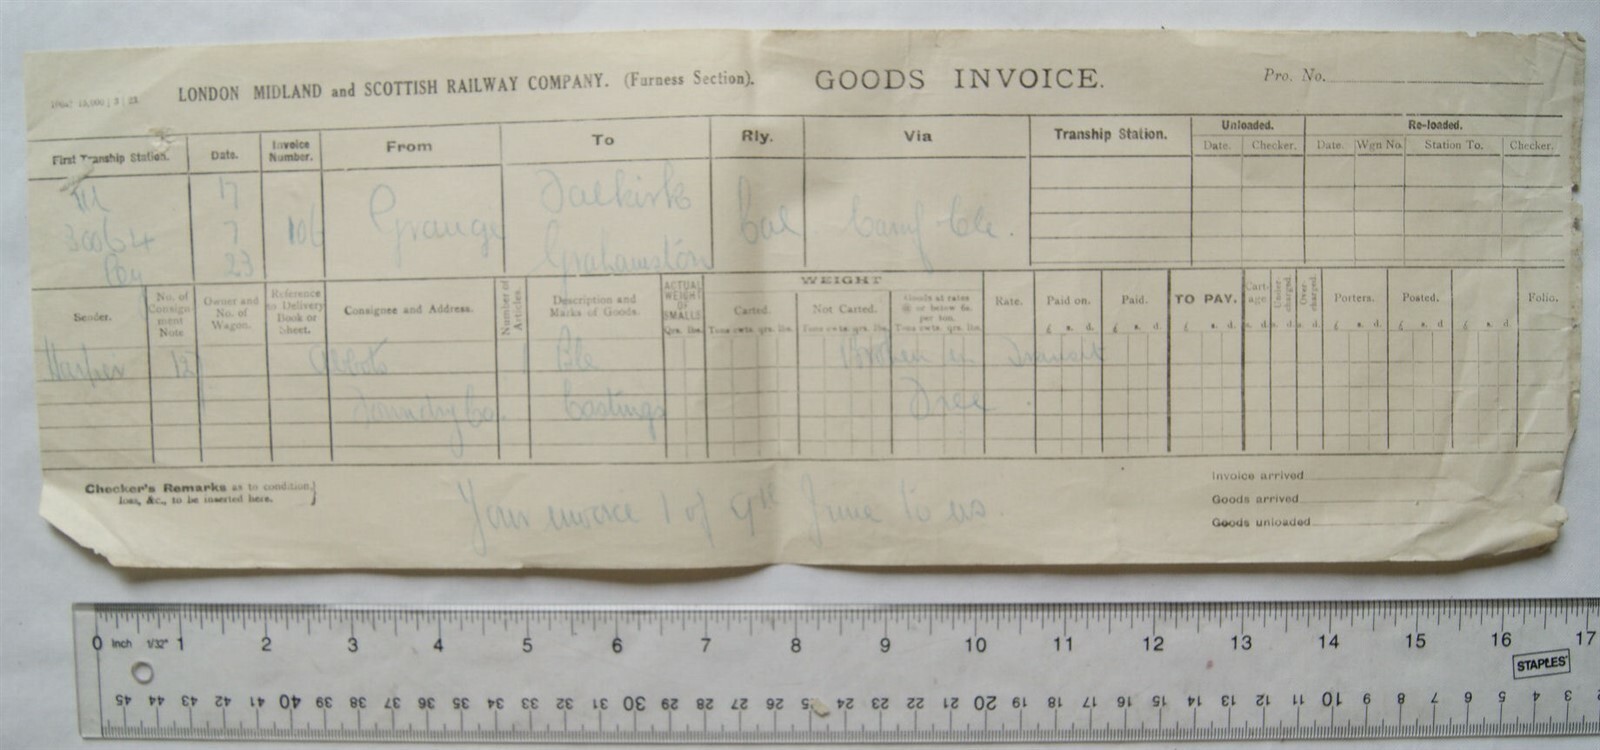 LONDON MIDLAND and SCOTTISH RAILWAY COMPANY. (Furness Section). GOODS INVOICE. Pro. No.
First Tranship Station. Date. Invoice Number. From To Rly. Via Tranship Station. Unloaded. Re-loaded.
Date. Checker. Date. Wgn No. Station To. Checker.
17 Falkirk
30064 7 106 Grange Cal. Carnf Cle.
23 Grahamston
Sender. No. of Consignment Note Owner and No. of Wagon. Reference to Delivery Book or Sheet. Consignee and Address. Number of Articles. Description and Marks of Goods. ACTUAL WEIGHT OF SMALLS WEIGHT Rate. Paid on. Paid. TO PAY. Cartage. Undercharged. Overcharged. Porters. Posted. Folio.
Carted. Not Carted. Goods at rates
Qrs. lbs. Tons cwts. qrs. lbs. Tons cwts. qrs. lbs. Tons cwts. qrs. lbs. £ s. d. £ s. d. £ s. d. £ s. d. £ s. d. £ s. d.
Harper 12 Abbots 1 Ble Broken in Transit
Foundry Co. Castings Free.
Checker's Remarks as to condition,
loss, &c., to be inserted here.
Your invoice 1 of 9th June to us.
Invoice arrived
Goods arrived
Goods unloaded
0 Inch 1/32" 1 2 3 4 5 6 7 8 9 10 11 12 13 14 15 16 17
STAPLES
45 44 43 42 41 40 39 38 37 36 35 34 33 32 31 30 29 28 27 26 25 24 23 22 21 20 19 18 17 16 15 14 13 12 11 10 9 8 7 6 5 4 3 2